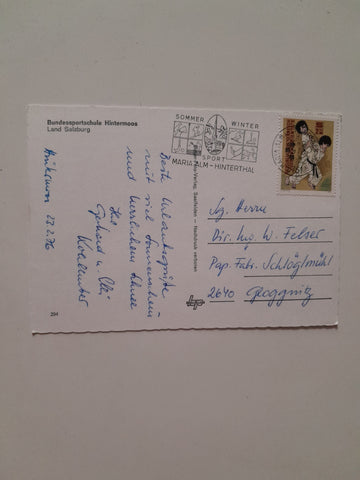 Bundessportschule Hintermoos
Land Salzburg
SOMMER WINTER
SPORT
MARIA ALM - HINTERTHAL
Hintermoos 22.2.76
Beste Urlaubsgrüße
mit viel Sonnenschein
und herrlichem Schnee
Gerhard u.
Sg. Herrn
Dir. Ing. W. Felser
Pap. Fabr. Schlöglmühl
2640 Gloggnitz
Saalfelden - Nachdruck verboten
294